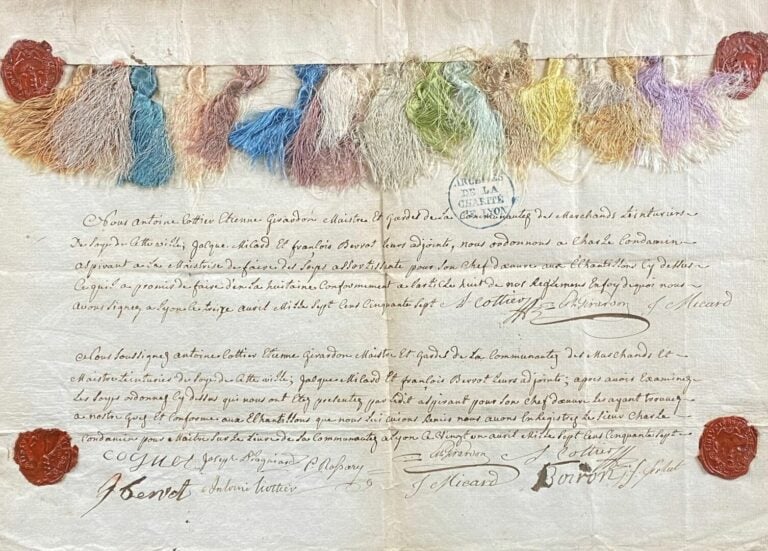 ARCHIVES
DE LA
CHARITÉ
LYON
Nous Antoine Cottier Etienne Girardon Maistre Et Gardes de La Communautez des Marchands teinturiers
De soye de Cette ville, Jacque Milard Et franÇois Berrot leurs adjoints, nous ordonnons a Charle Condamin
aspirant a La Maistrise de faire des soyes assortissante pour son Chef d'œuvre aux Echantillons Cy dessus
Ce qu'il a promis de faire dans La huitaine Conformement a L'article huit de nos Reglemens En foy de quoi nous
avons signez a Lyon Ce treize avril Mille Sept Cens Cinquante Sept A Cottier E Girardon J Micard
Nous Soussignez Antoine Cottier Etienne Girardon Maistre Et Gardes de La Communautez des Marchands Et
Maistre teinturiers de soye de Cette ville; Jacque Milard Et franÇois Berrot leurs adjoints; apres avoir Examinez
Les soyes ordonnez Cy dessus qui nous ont Etez presentez par Ledit aspirant pour son Chef d'œuvre Les ayant trouvez
a nostre Grez Et Conforme aux Echantillons que nous Lui avions Remis nous avons Enregistrez Le sieur Charle
Condamin pour Maitre sur Le Livre de La Communautez a Lyon Ce Vingt un avril Mille Sept Cens Cinquante Sept
Coguet Joseph E Girardon A Cottier
Berrot Antoine Cottier J Micard Boiron